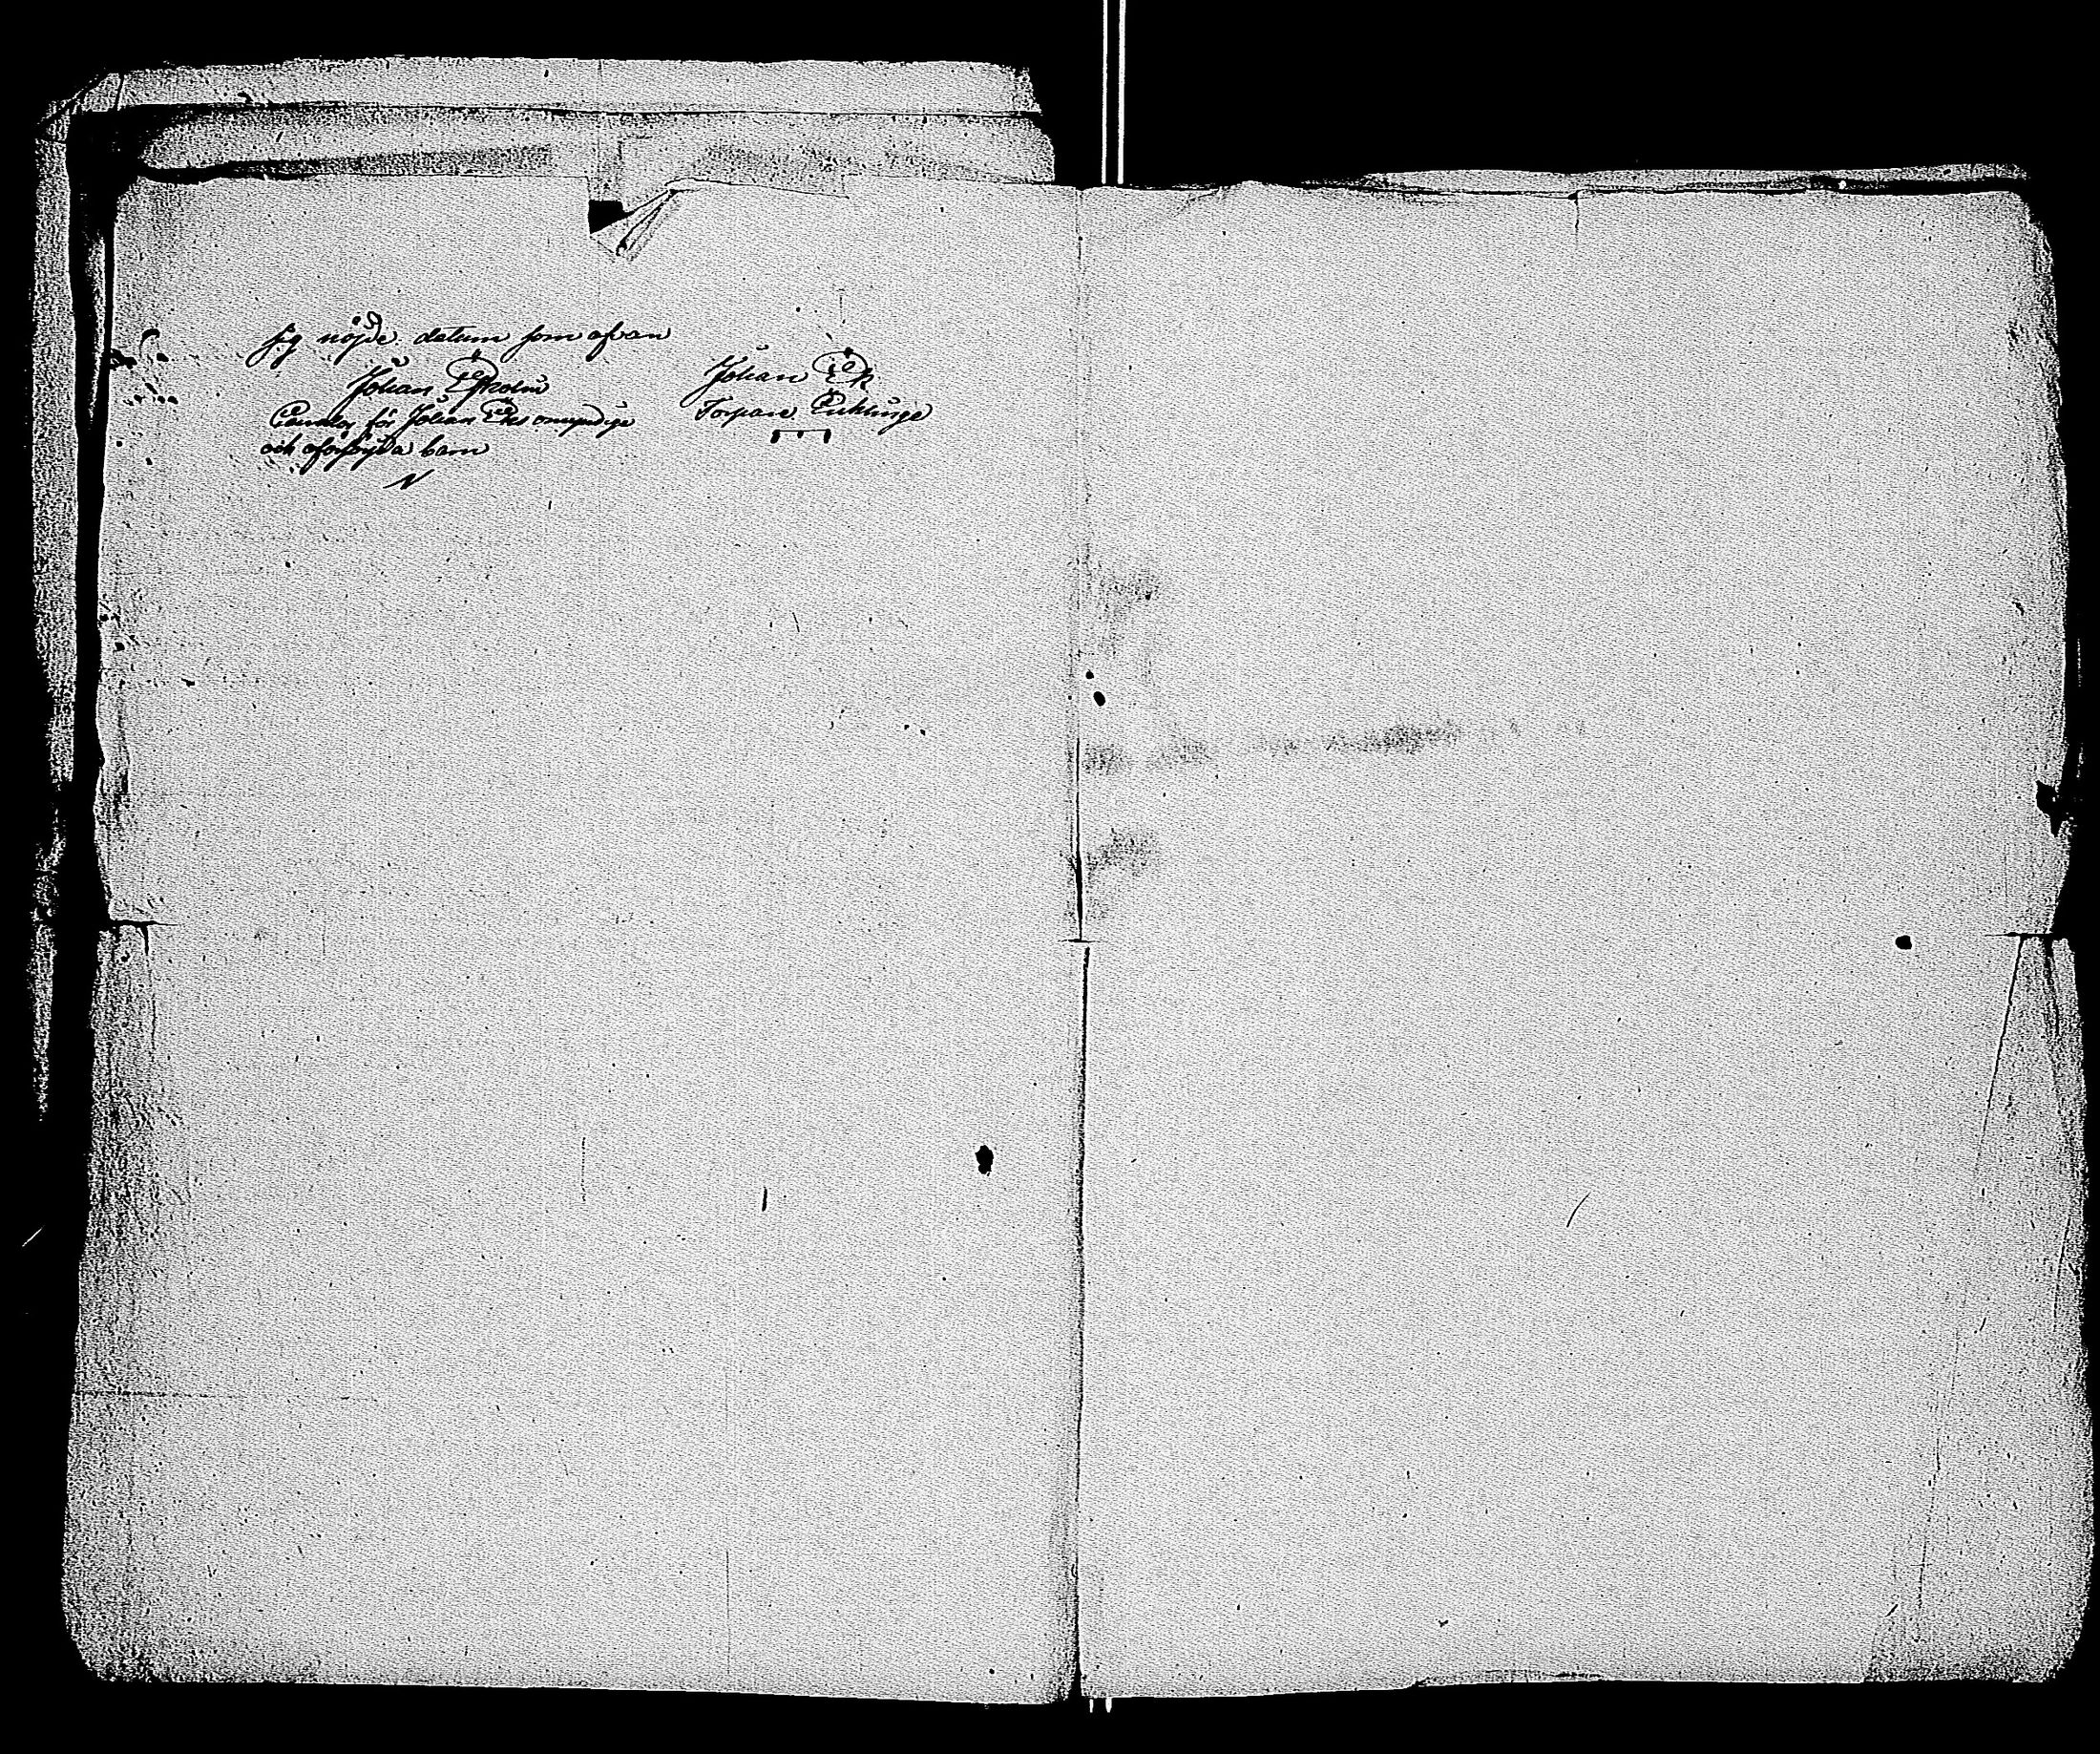 sig nöjde. datum som ofvan
Johan Ekholm
för Johan Eks omyndige
och oförsörjda barn
Johan Ek
Torpare